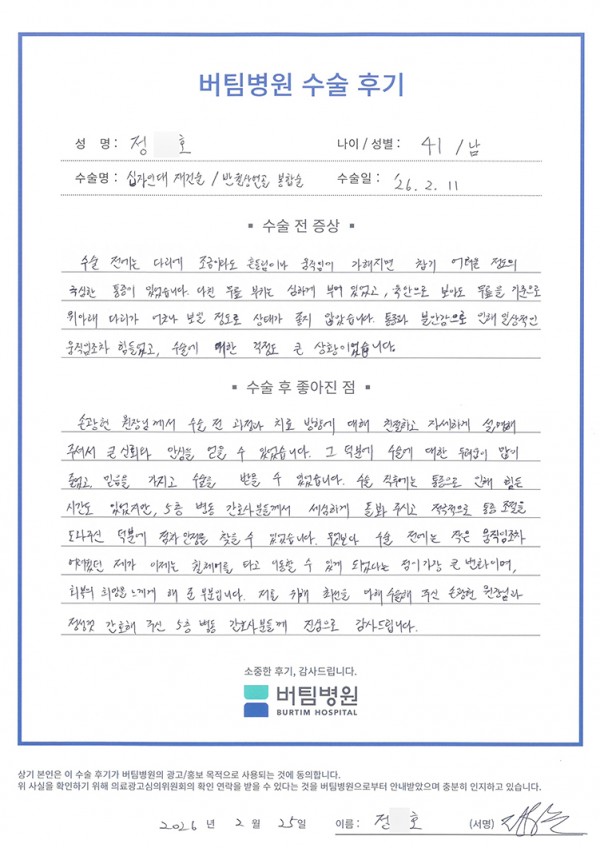 버팀병원 수술 후기
성 명 : 정 호 나이 / 성별 : 41 / 남
수술명 : 십자인대 재건술 / 반월상연골 봉합술 수술일 : 26. 2. 11
▪ 수술 전 증상 ▪
수술 전에는 다리에 조금이라도 흔들림이나 움직임이 가해지면 참기 어려운 정도의
극심한 통증이 있었습니다. 다친 무릎 부기는 심하게 부어 있었고, 육안으로 보아도 무릎을 기준으로
위아래 다리가 어긋나 보일 정도로 상태가 좋지 않았습니다. 통증과 불안감으로 인해 일상적인
움직임조차 힘들었고, 수술에 대한 걱정도 큰 상황이었습니다.
▪ 수술 후 좋아진 점 ▪
손광현 원장님께서 수술 전 과정과 치료 방향에 대해 친절하고 자세하게 설명해
주셔서 큰 신뢰와 안심을 얻을 수 있었습니다. 그 덕분에 수술에 대한 두려움이 많이
줄었고, 믿음을 가지고 수술을 받을 수 있었습니다. 수술 직후에는 통증으로 인해 힘든
시간도 있었지만, 5층 병동 간호사분들께서 세심하게 돌봐 주시고 적극적으로 통증 조절을
도와주신 덕분에 점차 안정을 찾을 수 있었습니다. 무엇보다 수술 전에는 작은 움직임조차
어려웠던 제가 이제는 휠체어를 타고 이동할 수 있게 되었다는 점이 가장 큰 변화이며,
회복의 희망을 느끼게 해 준 부분입니다. 저를 위해 최선을 다해 수술해 주신 손광현 원장님과
정성껏 간호해 주신 5층 병동 간호사분들께 진심으로 감사드립니다.
소중한 후기, 감사드립니다.
버팀병원
BURTIM HOSPITAL
상기 본인은 이 수술 후기가 버팀병원의 광고/홍보 목적으로 사용되는 것에 동의합니다.
위 사실을 확인하기 위해 의료광고심의위원회의 확인 연락을 받을 수 있다는 것을 버팀병원으로부터 안내받았으며 충분히 인지하고 있습니다.
2026 년 2 월 25 일 이름 : 정 호 (서명)